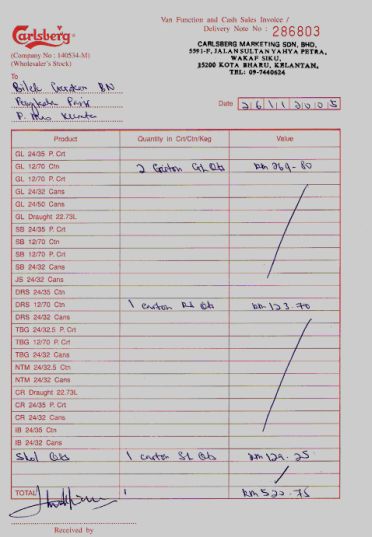 Carlsberg
(Company No : 140534-M)
(Wholesaler's Stock)
Van Function and Cash Sales Invoice /
Delivery Note No : 286803
CARLSBERG MARKETING SDN, BHD,
5591-F, JALAN SULTAN YAHYA PETRA,
WAKAF SIKU,
15200 KOTA BHARU, KELANTAN,
TEL: 09-7440624
To
Bilek Gerakan BN
Date 26 11 2005
Product Quantity in Crt/Ctn/Keg Value
GL 24/35 P. Crt
GL 12/70 Ctn 2 Carton GL Qts RM 269-80
GL 12/70 P. Crt
GL 24/32 Cans
GL 24/50 Cans
GL Draught 22.73L
SB 24/35 P. Crt
SB 12/70 Ctn
SB 12/70 P. Crt
SB 24/32 Cans
JS 24/32 Cans
DRS 24/35 Ctn
DRS 12/70 Ctn 1 carton Qts RM 123.70
DRS 24/32 Cans
TBG 24/32.5 P. Crt
TBG 12/70 P. Crt
TBG 24/32 Cans
NTM 24/32.5 Ctn
NTM 24/32 Cans
CR Draught 22.73L
CR 24/35 P. Crt
CR 24/32 Cans
IB 24/35 Ctn
IB 24/32 Cans
Skol Qts 1 carton SL Qts RM 129.25
TOTAL RM 520.75
Received by